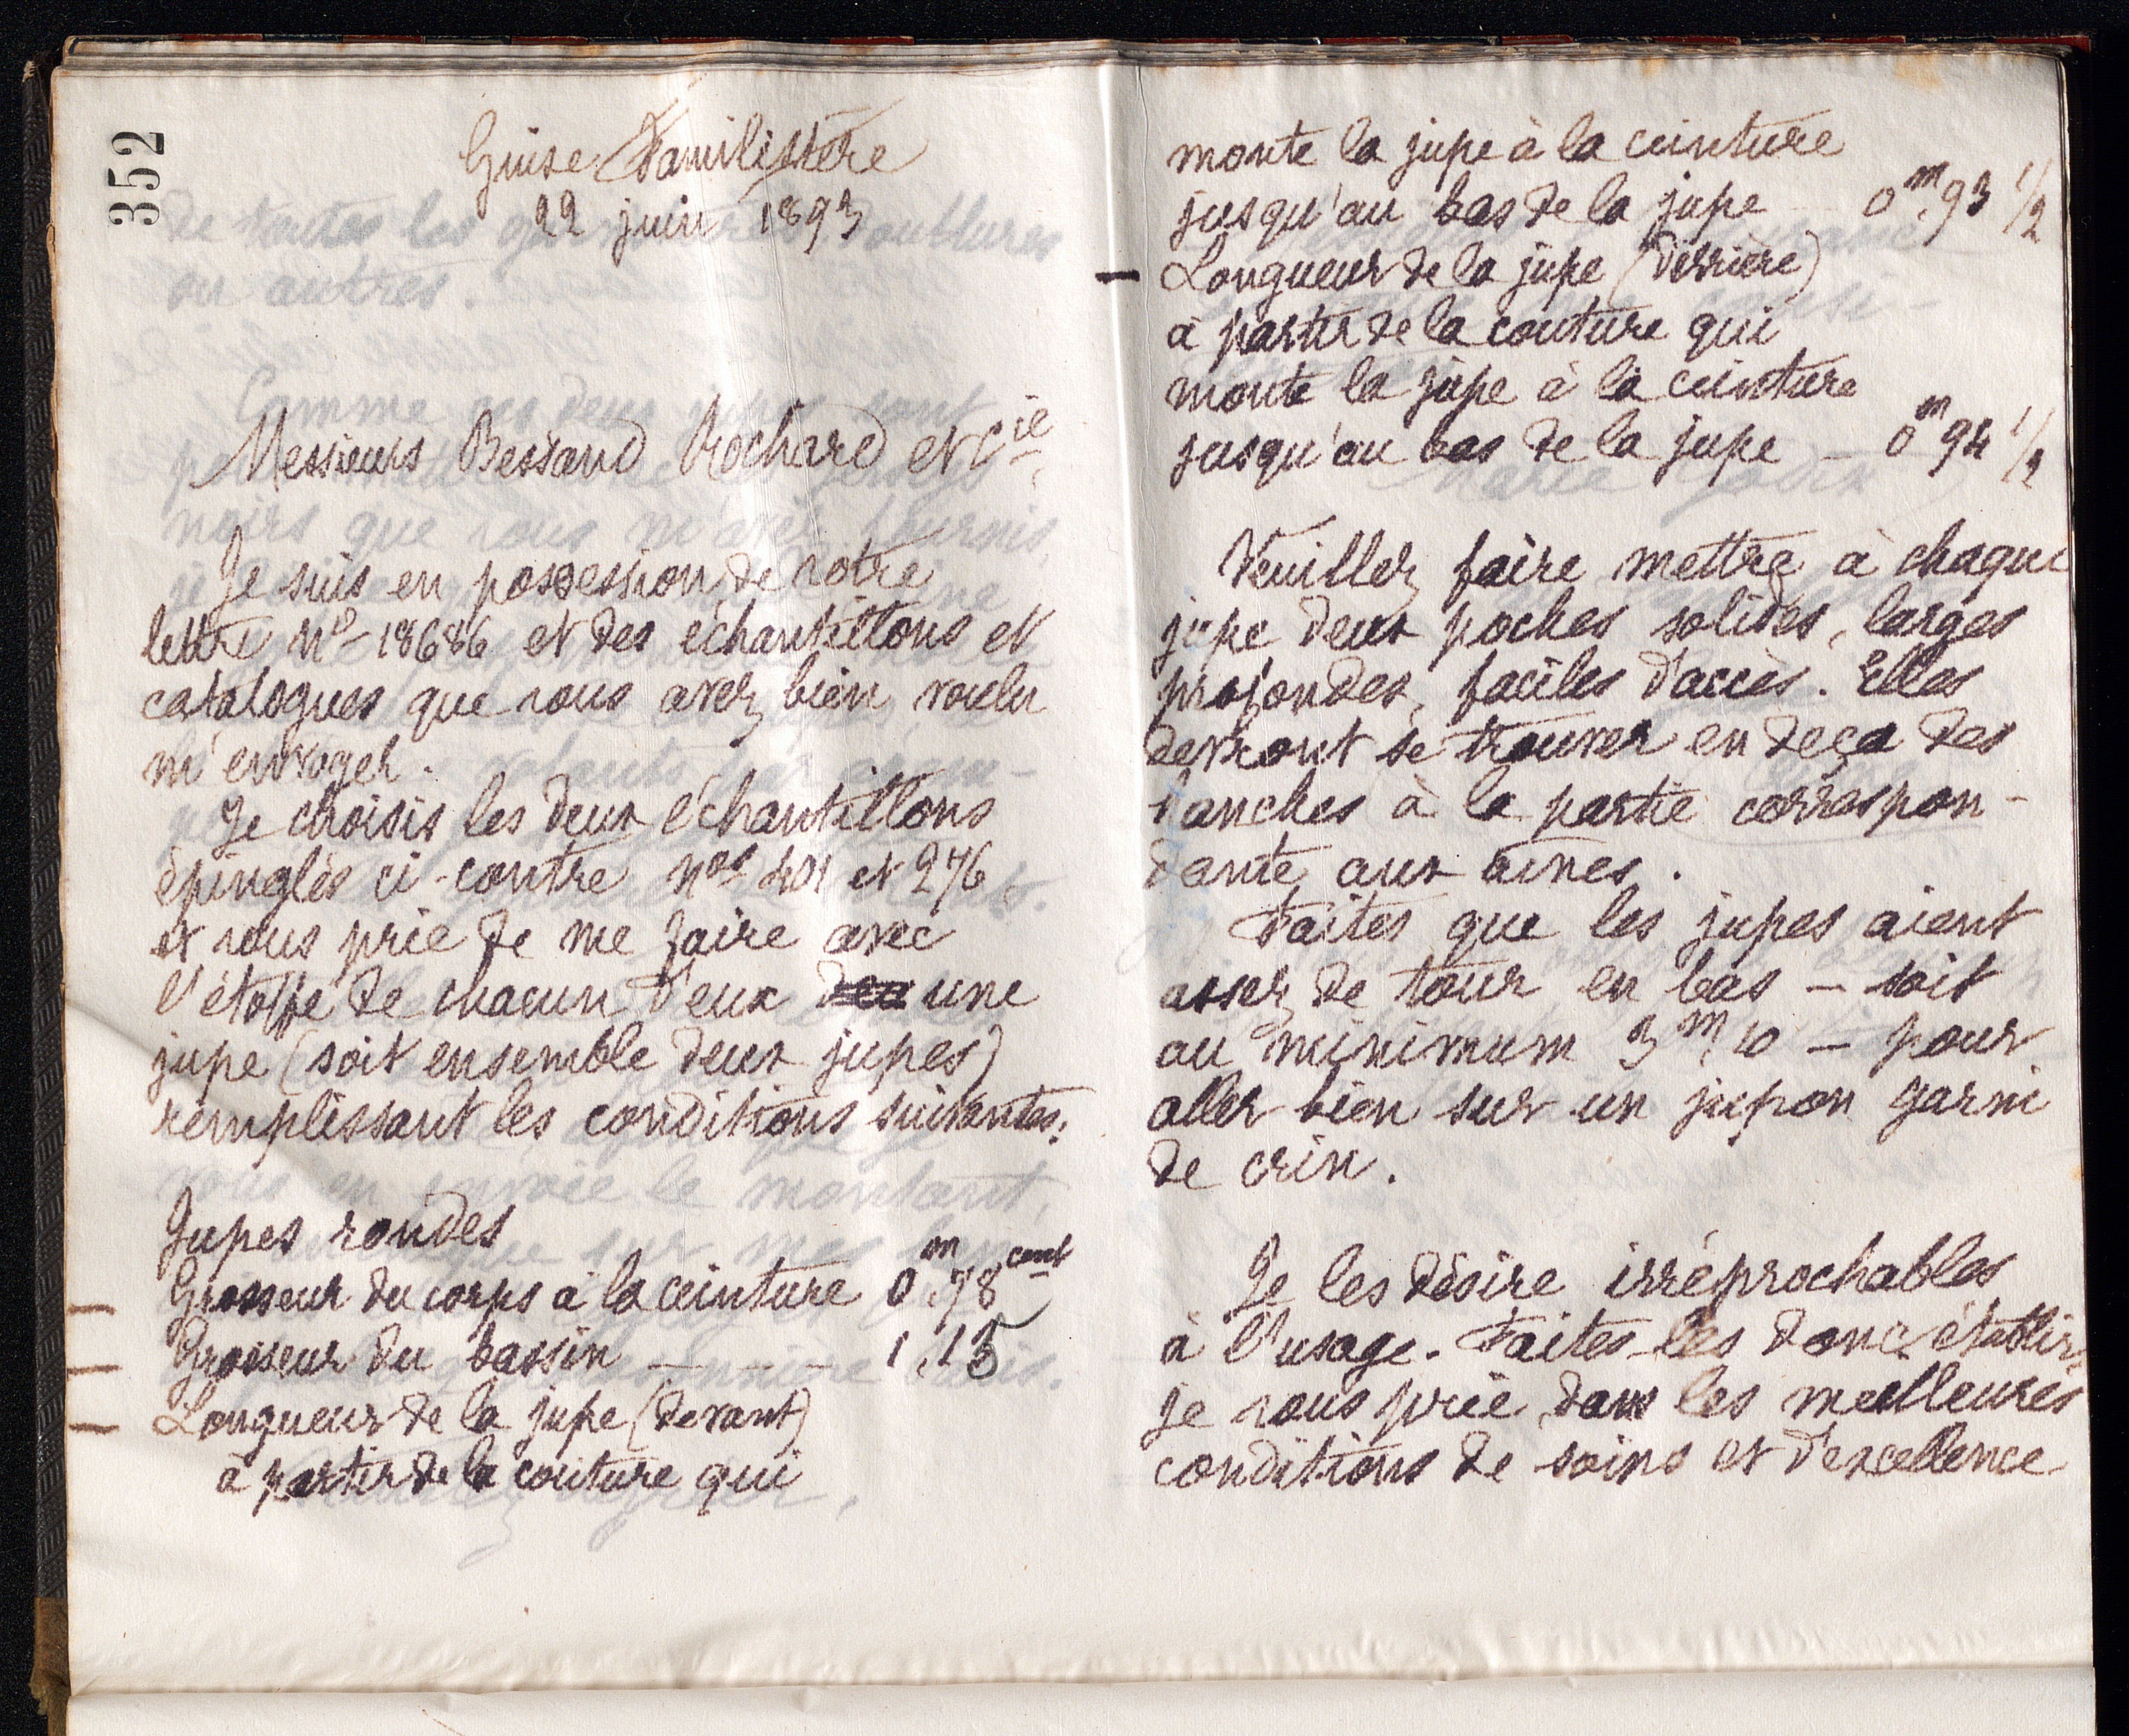 352
Guise Familistère
22 juin 1893
Messieurs Bessand Rochard et Cie,
Je suis en possession de votre
lettre no 18686 et des échantillons et
catalogues que vous avez bien voulu
m'envoyer.
Je choisis les deux échantillons
épinglés ci-contre nos 401 et 276
et vous prie de me faire avec
l'étoffe de chacun d'eux une
jupe (soit ensemble deux jupes)
remplissant les conditions suivantes:
Jupes rondes
Grosseur du corps à la ceinture 0m,78cent
Grosseur du bassin - - - 1,15
Longueur de la jupe (devant)
à partir de la couture qui
monte la jupe à la ceinture
jusqu'au bas de la jupe 0m,93 1/2
Longueur de la jupe (derrière)
à partir de la couture qui
monte la jupe à la ceinture
jusqu'au bas de la jupe - 0m94 1/2
Veuillez faire mettre à chaque
jupe deux poches solides, larges
profondes, faciles d'accès. Elles
devront se trouver en deça des
hanches à la partie correspon-
dante aux aines.
Faites que les jupes aient
assez de tour en bas - soit
au minimum 3m,10 - pour
aller bien sur un jupon garni
de crin.
Je les désire irréprochables
à l'usage. Faites-les donc établir,
je vous prie, dans les meilleures
conditions de soins et d'excellence